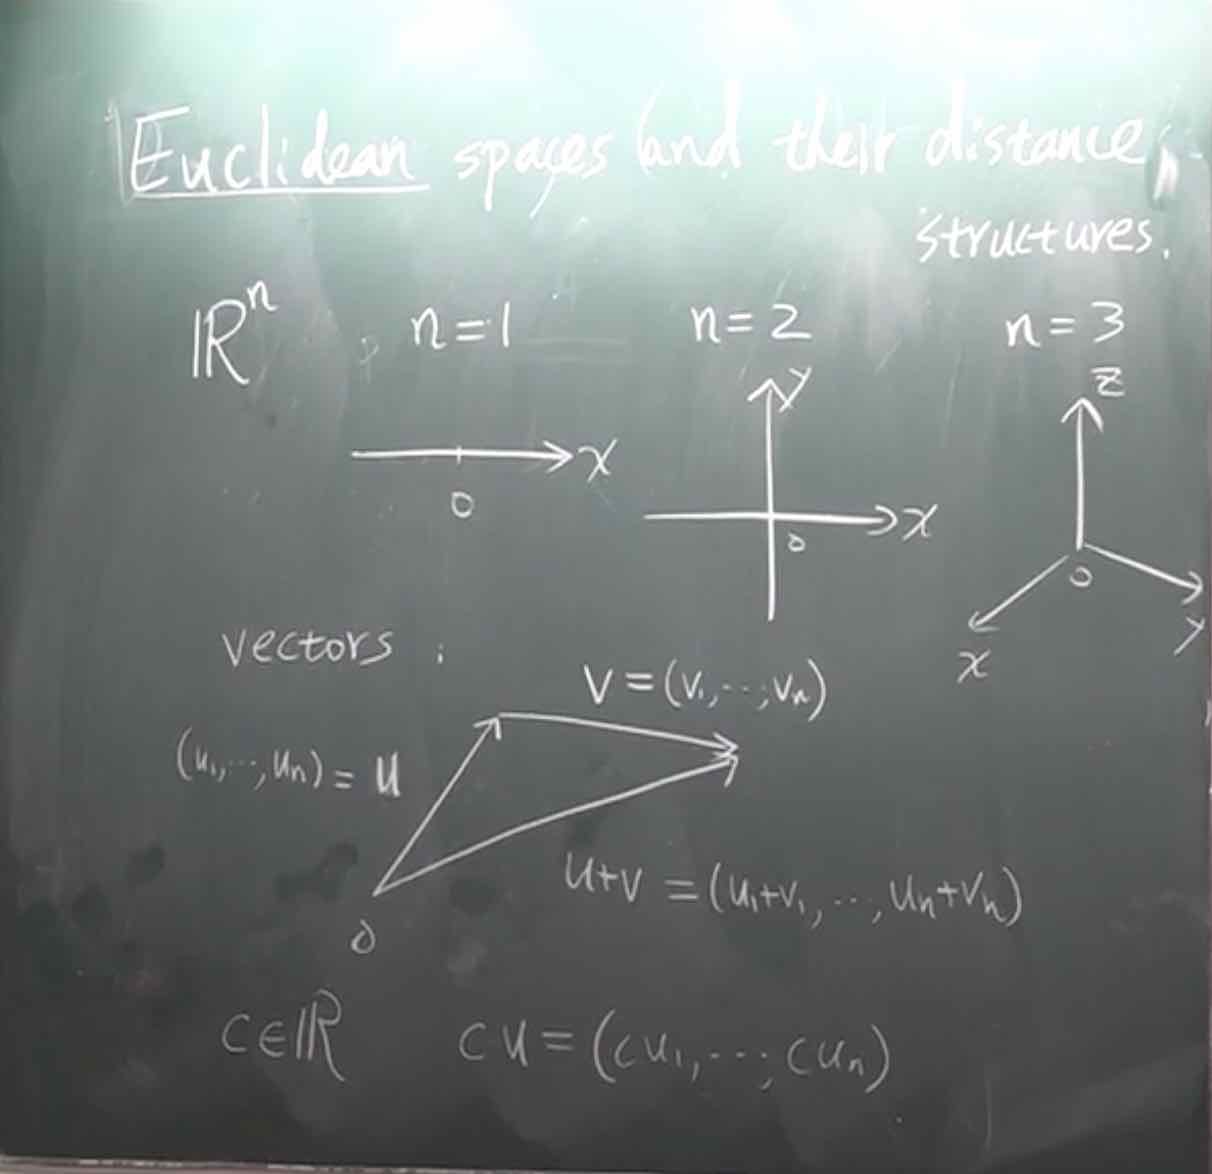 Euclidean spaces (and their distance
structures.
ℝⁿ n=1 n=2 n=3
y z
x
0 x
0 0
y
x
vectors :
v=(v₁,…,vₙ)
(u₁,…,uₙ)=u
u+v=(u₁+v₁,…,uₙ+vₙ)
0
c∈ℝ cu=(cu₁,…,cuₙ)